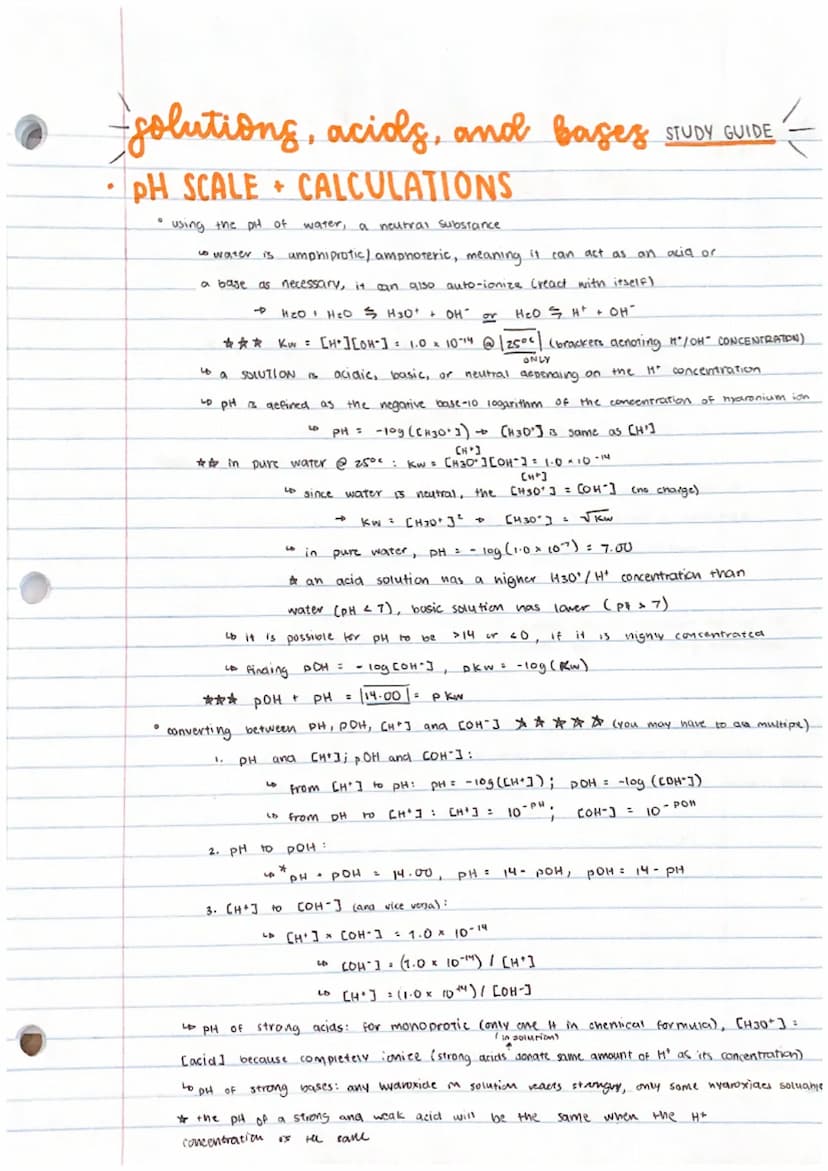 solutions, acids, and bases STUDY GUIDE
• pH SCALE + CALCULATIONS
° using the pH of water, a neutral substance
↳ water is amphiprotic/amphoteric, meaning it can act as an acid or
a base as necessary, it can also auto-ionize (react with itself)
→ H2O + H2O ⇆ H3O⁺ + OH⁻ or H2O ⇆ H⁺ + OH⁻
★★★ Kw = [H⁺][OH⁻] = 1.0 × 10⁻¹⁴ @ 25°C (brackets denoting H⁺/OH⁻ CONCENTRATION)
ONLY
↳ a SOLUTION is acidic, basic, or neutral depending on the H⁺ concentration
↳ pH is defined as the negative base-10 logarithm of the concentration of hydronium ion
↳ pH = -log([H3O⁺]) → [H3O⁺] is same as [H⁺]
[H⁺]
★★ in pure water @ 25°C : Kw = [H3O⁺][OH⁻] = 1.0 × 10⁻¹⁴
[H⁺]
↳ since water is neutral, the [H3O⁺] = [OH⁻] (no charge)
→ Kw = [H3O⁺]² → [H3O⁺] = √Kw
↳ in pure water, pH = -log(1.0 × 10⁻⁷) = 7.00
★ an acid solution has a higher H3O⁺/H⁺ concentration than
water (pH < 7), basic solution has lower (pH > 7)
↳ it is possible for pH to be >14 or <0, if it is highly concentrated
↳ finding pOH = -log[OH⁻], pKw = -log(Kw)
★★★ pOH + pH = 14.00 = pKw
° converting between pH, pOH, [H⁺] and [OH⁻] ★★★★★ (you may have to use multiple)
1. pH and [H⁺]; pOH and [OH⁻]:
↳ from [H⁺] to pH: pH = -log([H⁺]); pOH = -log([OH⁻])
↳ from pH to [H⁺]: [H⁺] = 10⁻ᵖᴴ; [OH⁻] = 10⁻ᵖᴼᴴ
2. pH to pOH:
↳ * pH + pOH = 14.00, pH = 14 - pOH, pOH = 14 - pH
3. [H⁺] to [OH⁻] (and vice versa):
↳ [H⁺] × [OH⁻] = 1.0 × 10⁻¹⁴
↳ [OH⁻] = (1.0 × 10⁻¹⁴) / [H⁺]
↳ [H⁺] = (1.0 × 10⁻¹⁴) / [OH⁻]
↳ pH of strong acids: for monoprotic (only one H in chemical formula), [H3O⁺] =
(in solution)
[acid] because completely ionize (strong acids donate same amount of H⁺ as its concentration)
↳ pH of strong bases: any hydroxide in solution reacts strongly, only some hydroxides soluable
★ the pH of a strong and weak acid will be the same when the H⁺
concentration is the same